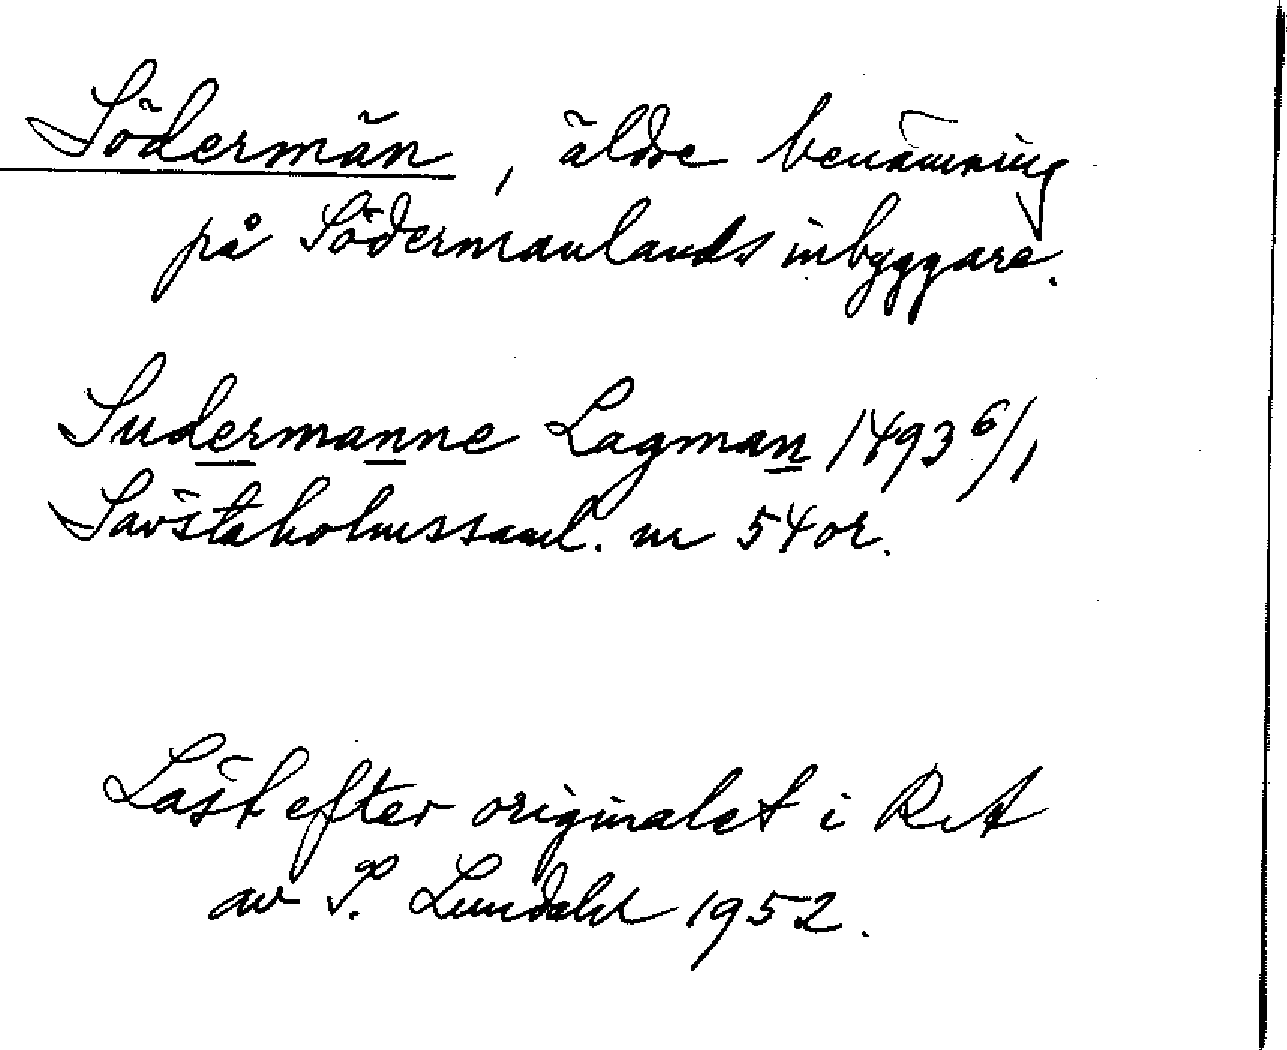 Södermän, äldre benämning
på Södermanlands inbyggare.
Sudermanne Lagman 1493 6/1
Sävstaholmssaml. nr 54 or.
Läst efter originalet i RA
av I. Lundahl 1952.